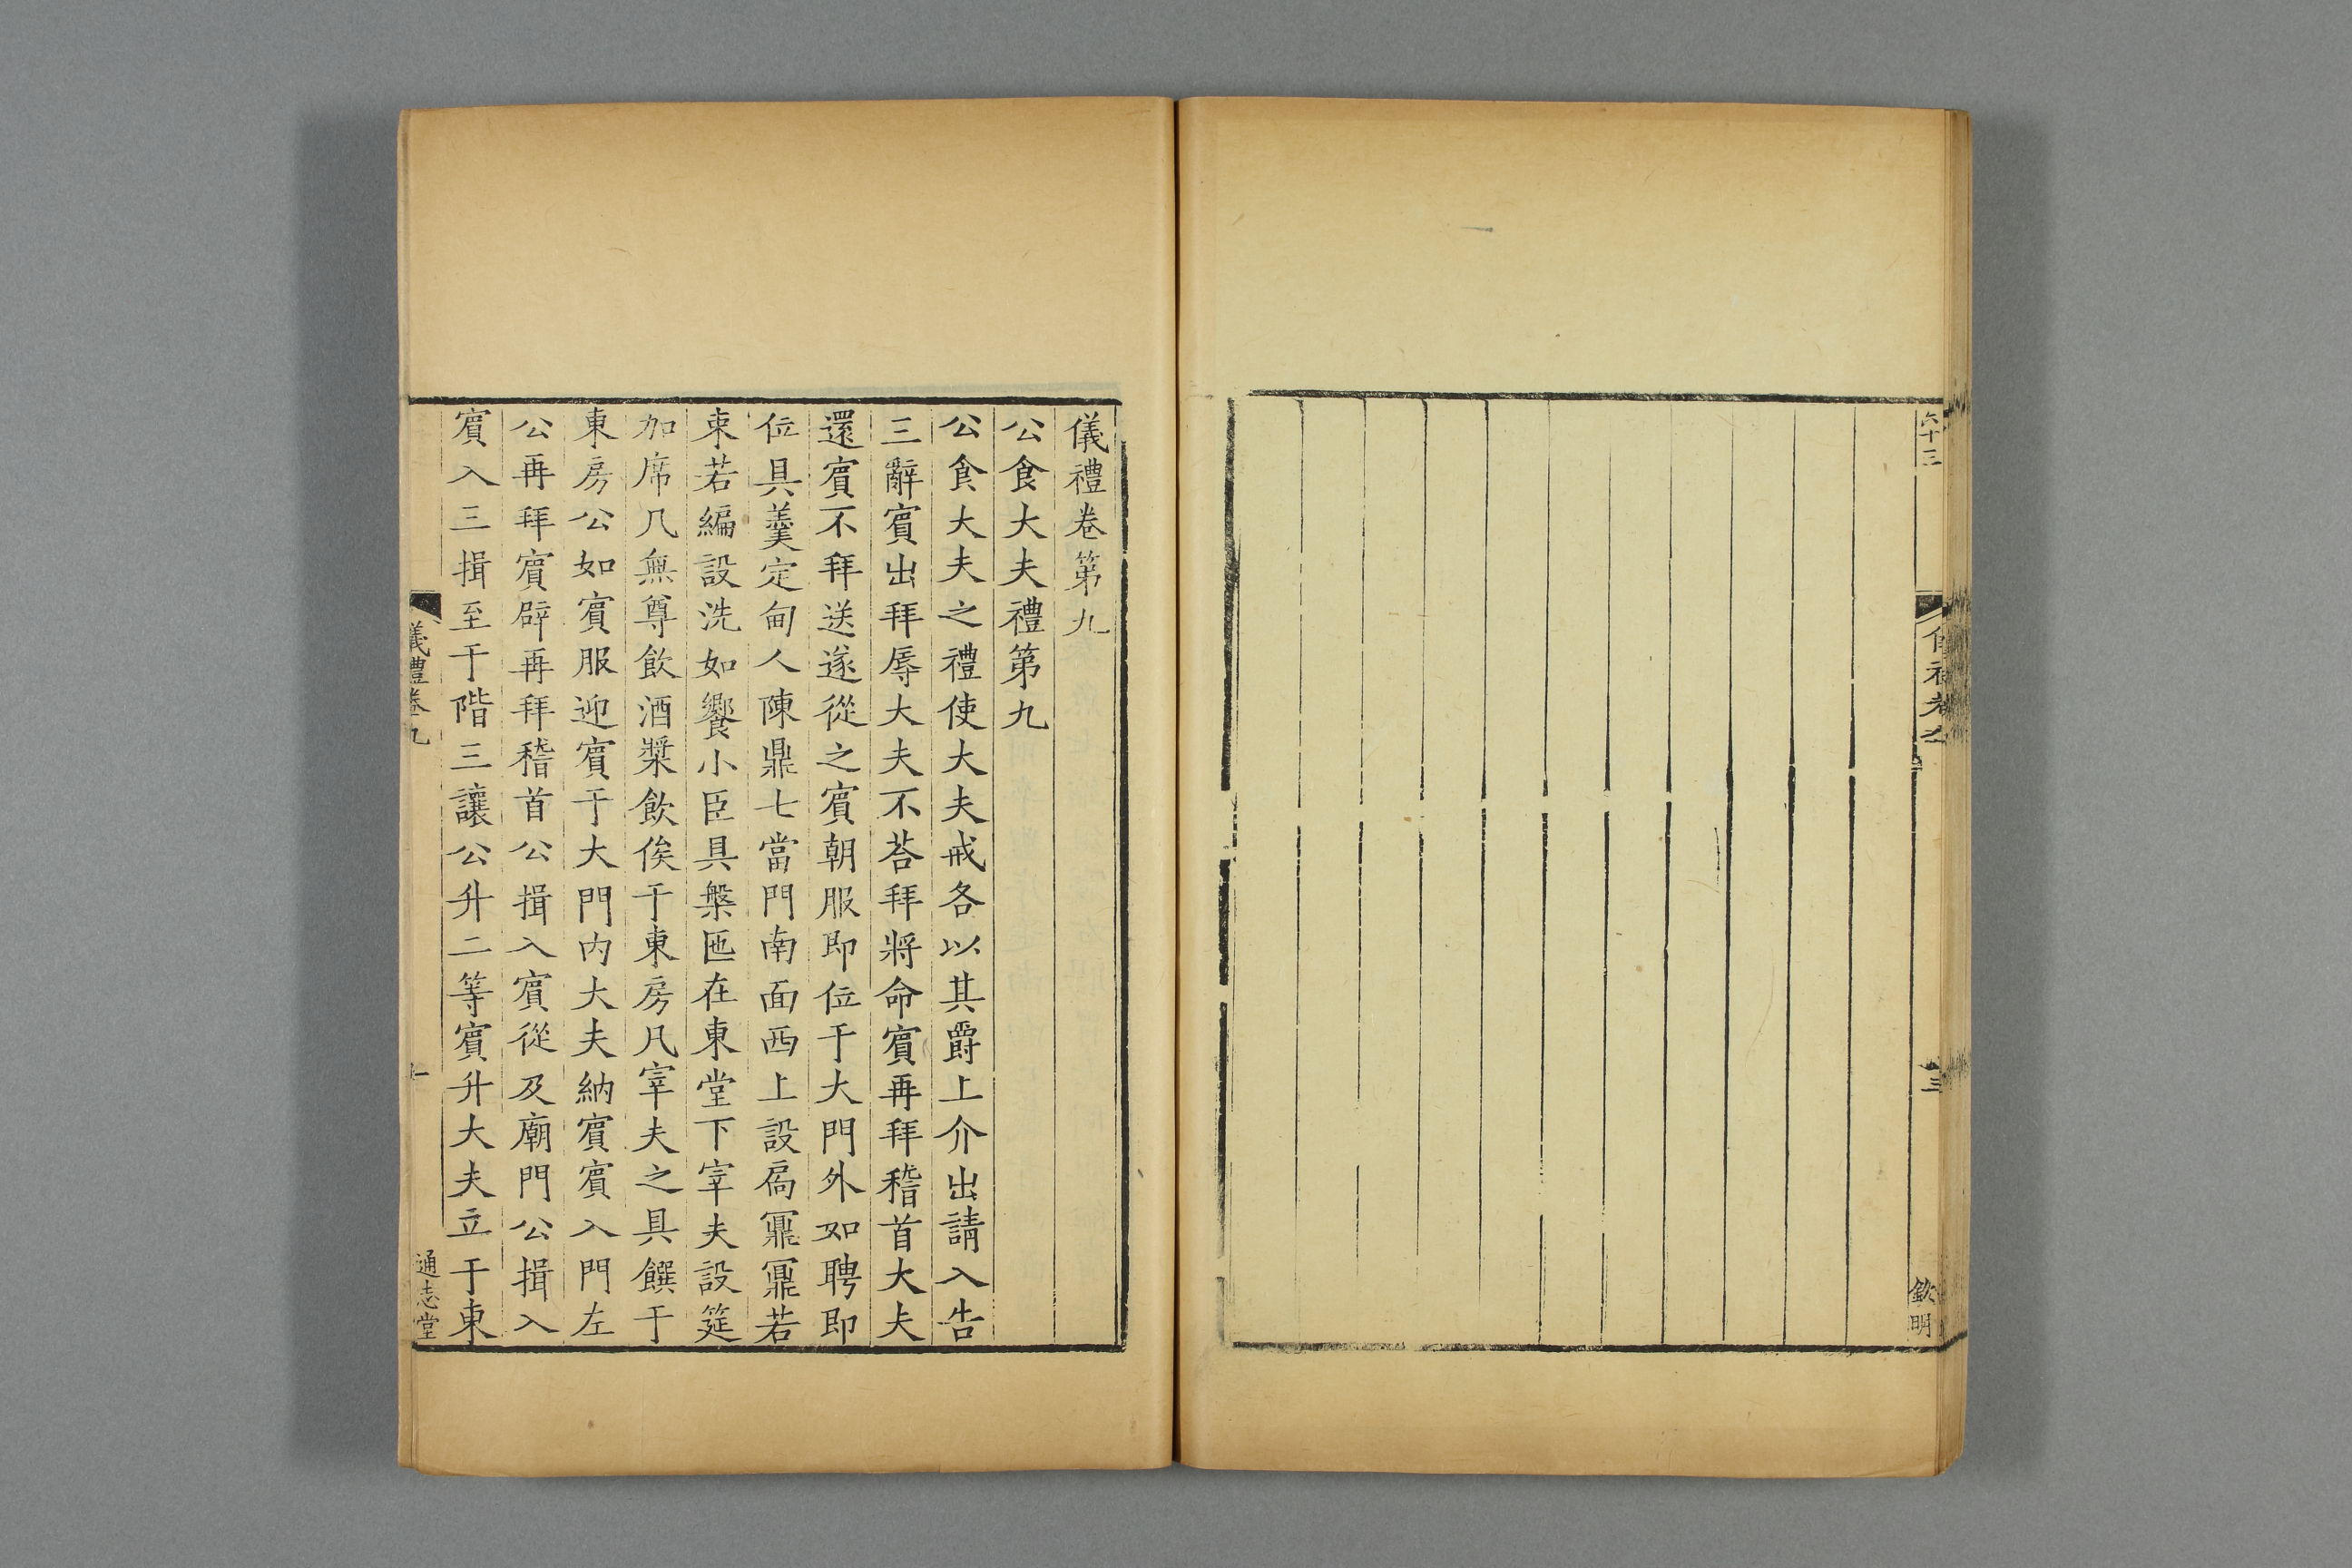 六十三
三
欽明
儀禮卷第九
公食大夫禮第九
公食大夫之禮使大夫戒各以其爵上介出請入告
三辭賓出拜辱大夫不荅拜將命賓再拜稽首大夫
還賓不拜送遂從之賓朝服即位于大門外如聘即
位具羹定甸人陳鼎七當門南面西上設扃鼏鼏若
束若編設洗如饗小臣具槃匜在東堂下宰夫設筵
加席几無尊飲酒漿飲俟于東房凡宰夫之具饌于
東房公如賓服迎賓于大門內大夫納賓賓入門左
公再拜賓辟再拜稽首公揖入賓從及廟門公揖入
賓入三揖至于階三讓公升二等賓升大夫立于東
儀禮卷九
一
通志堂